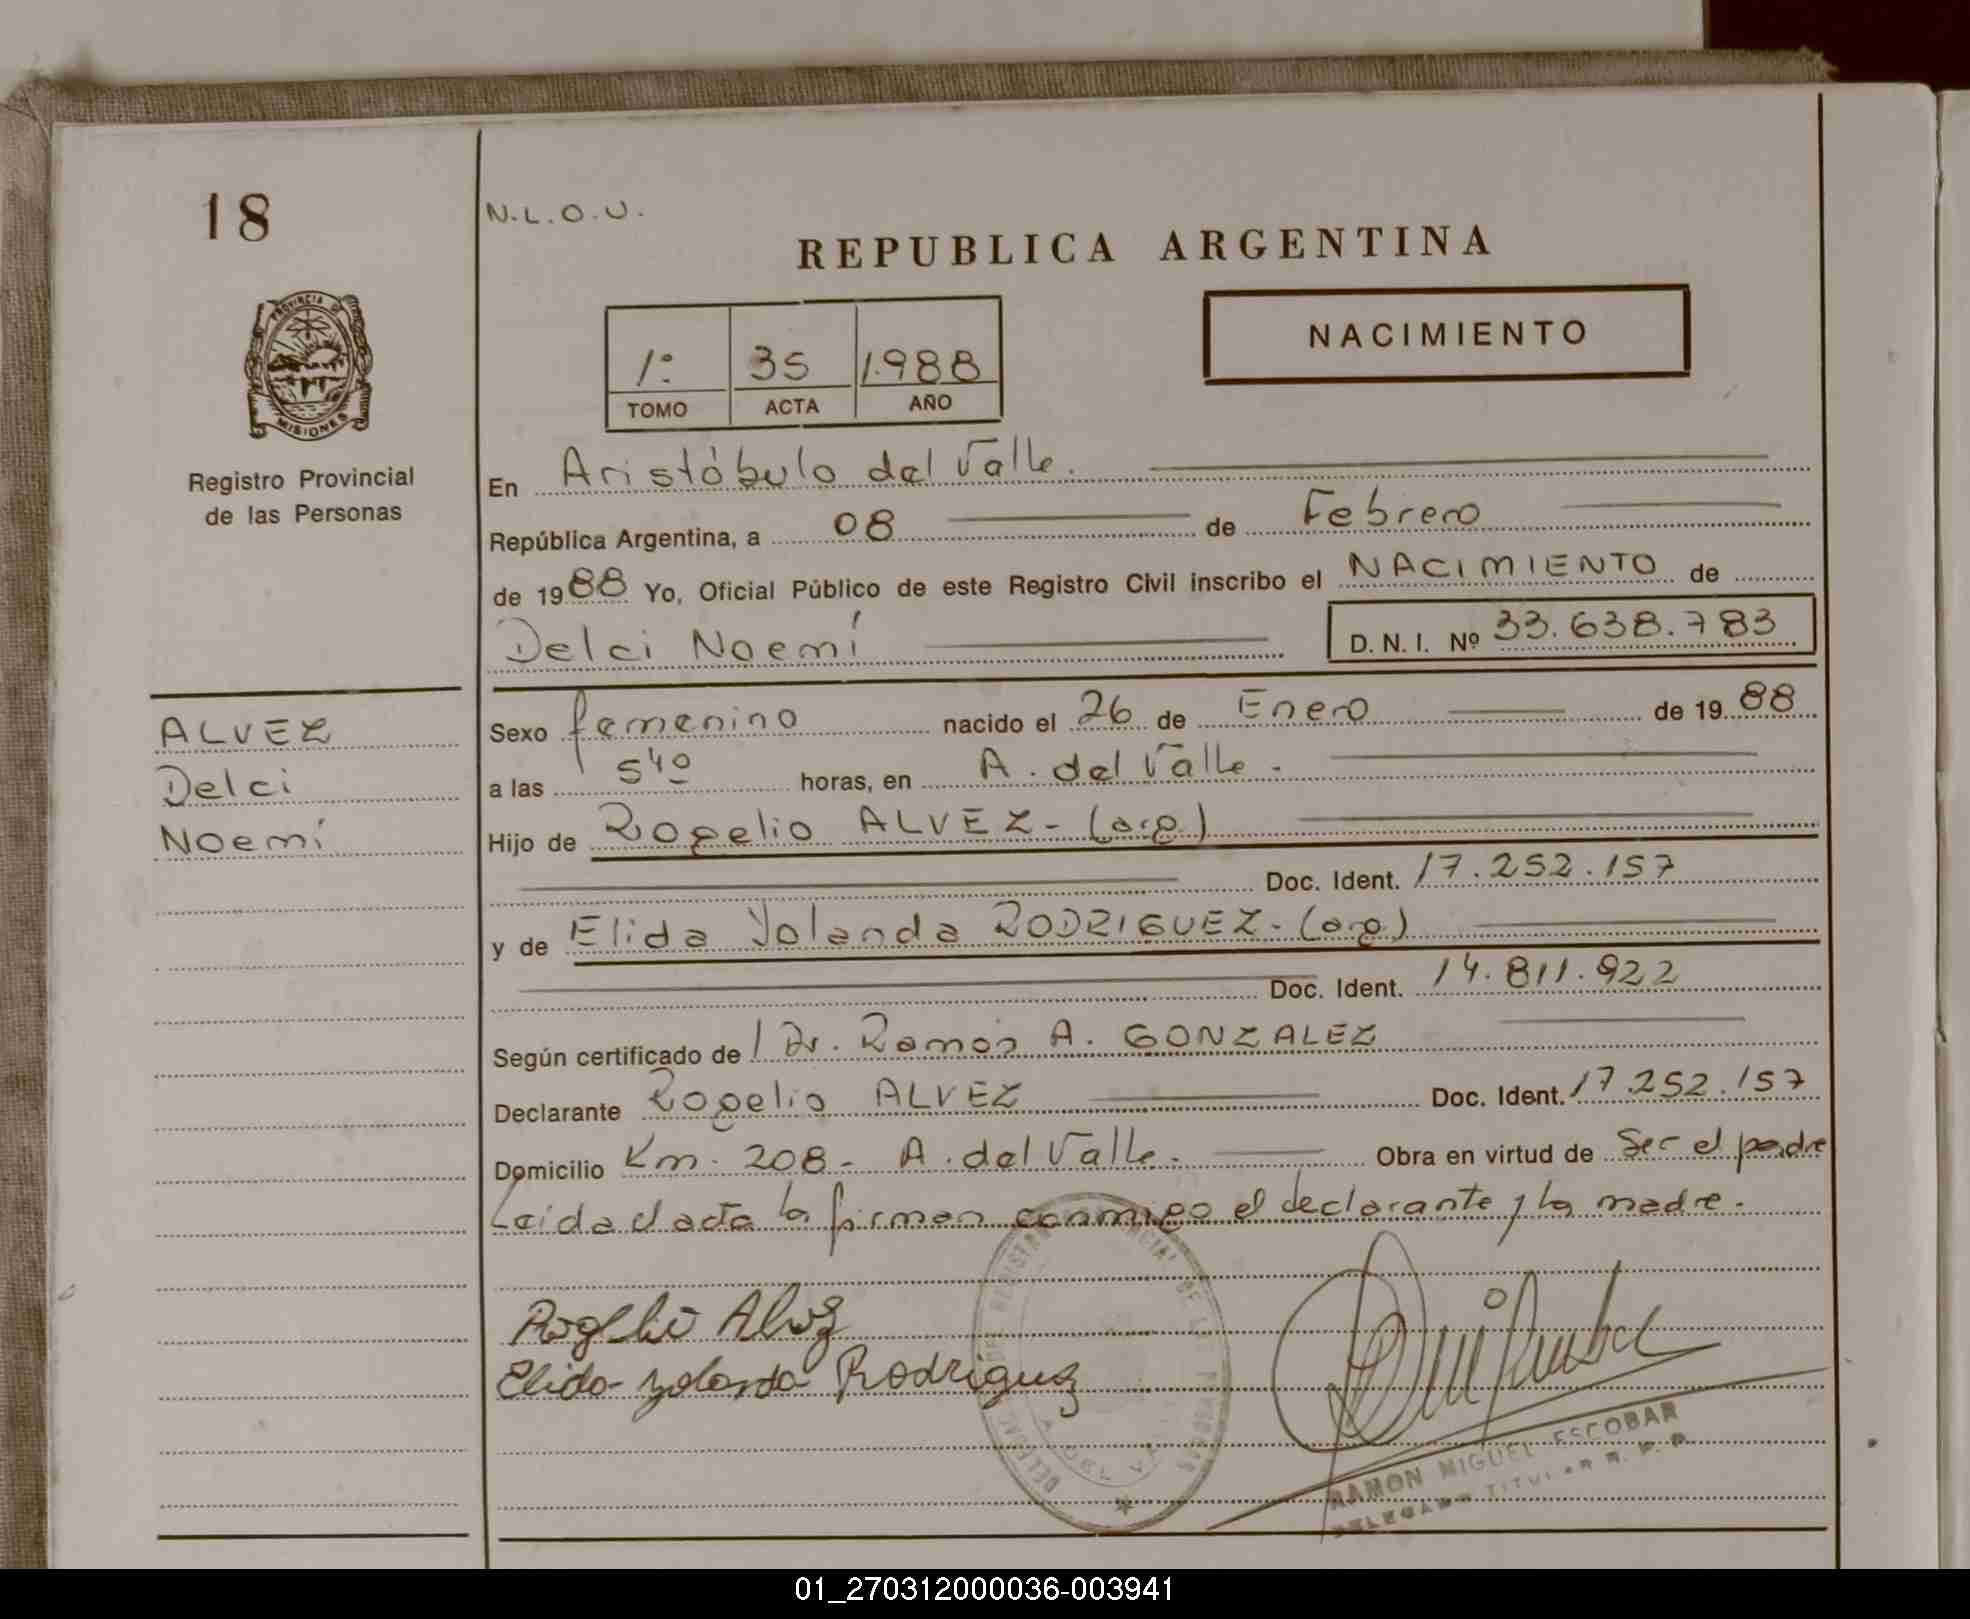 18
N.L.O.U.
REPUBLICA ARGENTINA
PROVINCIA DE
MISIONES
NACIMIENTO
1º 35 1.988
TOMO ACTA AÑO
Registro Provincial
de las Personas
En Aristóbulo del Valle.
República Argentina, a 08 de Febrero
de 1988 Yo, Oficial Público de este Registro Civil inscribo el NACIMIENTO de
Delci Noemí D. N. I. Nº 33.638.783
ALVEZ
Delci
Noemí
Sexo femenino nacido el 26 de Enero de 1988
a las 5⁴⁰ horas, en A. del Valle.
Hijo de Rogelio ALVEZ - (arg)
Doc. Ident. 17.252.157
y de Elida Yolanda RODRIGUEZ - (arg)
Doc. Ident. 14.811.922
Según certificado de / Dr. Ramón A. GONZALEZ
Declarante Rogelio ALVEZ Doc. Ident. 17.252.157
Domicilio Km. 208 - A. del Valle. Obra en virtud de Ser el padre
Leida el acta la firman conmigo el declarante y la madre.
Rogelio Alvez
Elida Yolanda Rodriguez
RAMON MIGUEL ESCOBAR
DELEGADO TITULAR R. P. P.
01_270312000036-003941